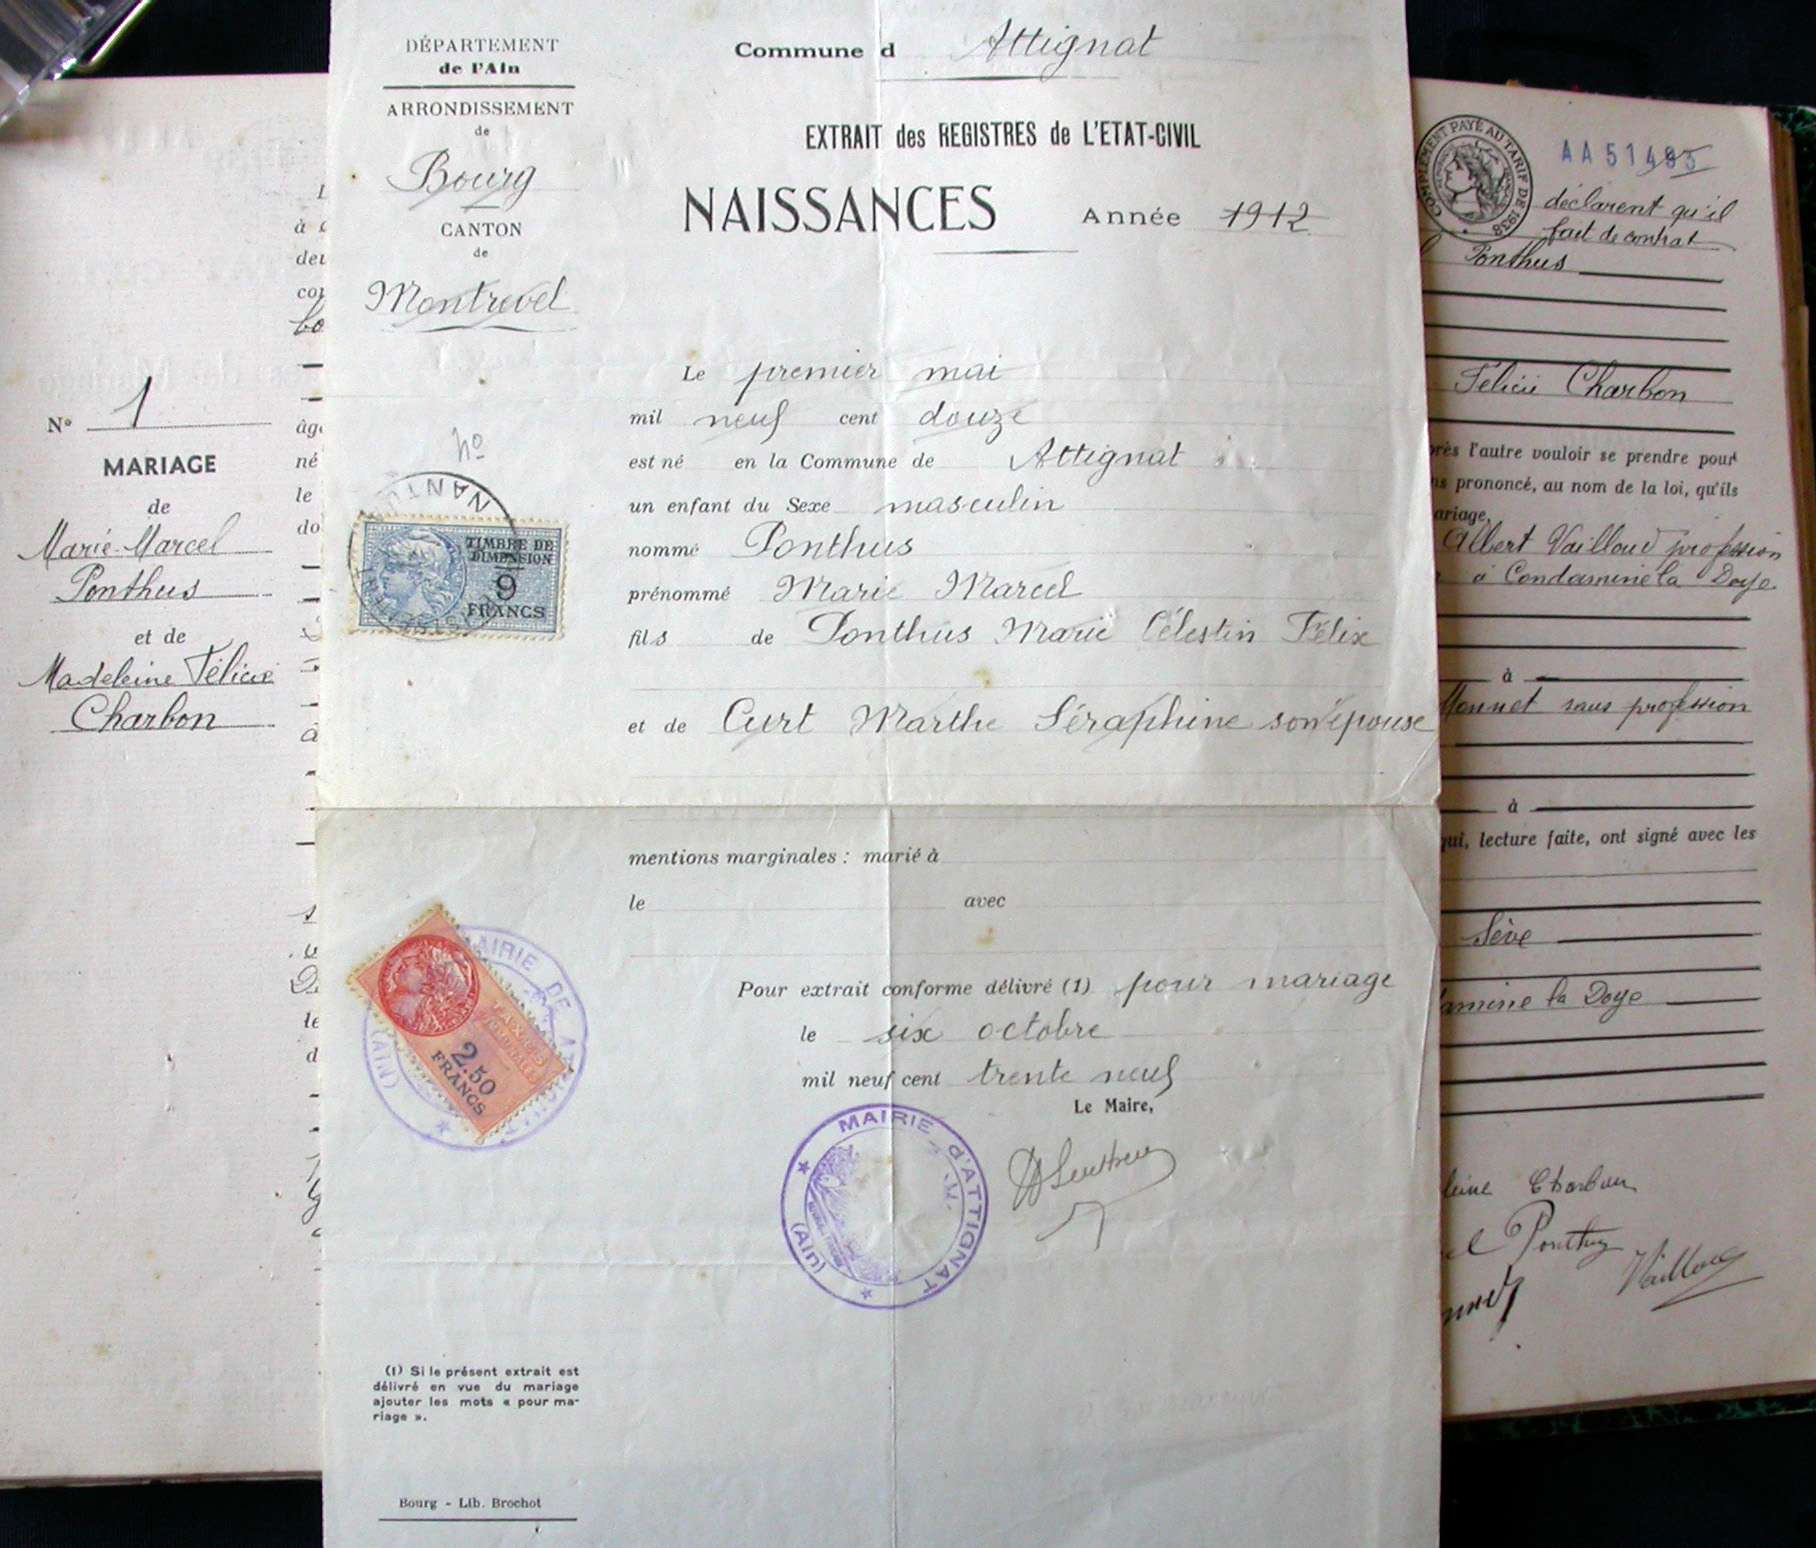 DÉPARTEMENT
de l'Ain
ARRONDISSEMENT
de
Bourg
CANTON
de
Montrevel
Commune d Attignat
EXTRAIT des REGISTRES de L'ETAT-CIVIL
NAISSANCES Année 1912
Le premier mai
mil neuf cent douze
est né en la Commune de Attignat
un enfant du Sexe masculin
nommé Ponthus
prénommé Marie Marcel
fils de Ponthus Marie Célestin Félix
et de Curt Marthe Séraphine son épouse
mentions marginales : marié à
le avec
Pour extrait conforme délivré (1) pour mariage
le six octobre
mil neuf cent trente neuf
Le Maire,
MAIRIE d'ATTIGNAT
(Ain)
No
NANTU
TIMBRE DE
DIMENSION
9
FRANCS
MAIRIE DE
(AIN)
2.50
FRANCS
(1) Si le présent extrait est
délivré en vue du mariage
ajouter les mots « pour ma-
riage ».
Bourg - Lib. Brochot
N° 1
MARIAGE
de
Marie-Marcel
Ponthus
et de
Madeleine Félicie
Charbon
à
deu
con
bo
âgé
né
le
do
à
le
d
COMPLEMENT PAYÉ AU TARIF DE 1938
AA51495
déclarent qu'il
fait de contrat
Ponthus
Félicie Charbon
près l'autre vouloir se prendre pour
ns prononcé, au nom de la loi, qu'ils
ariage,
Albert Vailloud profession
à Condamine la Doye
à
Monnet sans profession
à
qui, lecture faite, ont signé avec les
Sève
damine la Doye
leine Charbon
el Ponthus
Vailloud